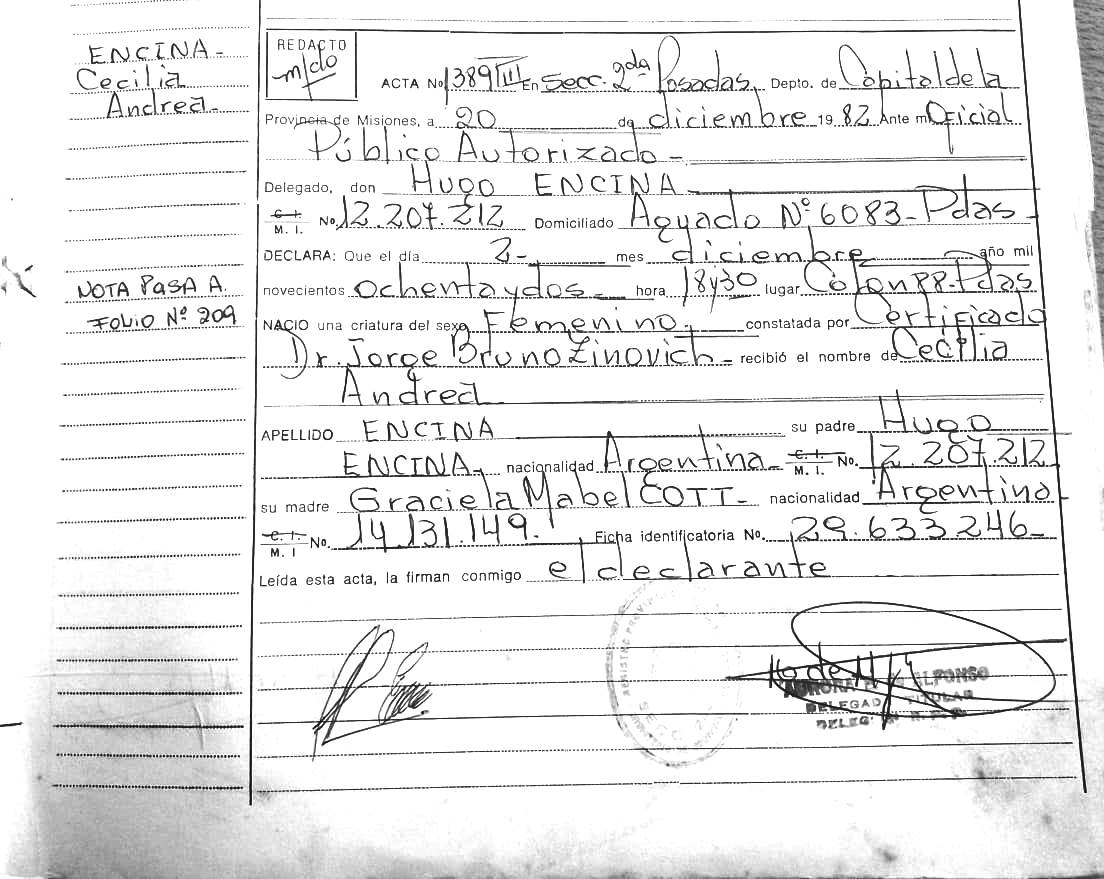 ENCINA-
Cecilia
Andrea-
NOTA PASA A.
FOLIO Nº 209
REDACTO
m/do
ACTA No 1389 TIII En Secc. 2da Posadas, Depto. de Capital de la
Provincia de Misiones, a 20 de diciembre 1982 Ante mi Oficial
Público Autorizado -
Delegado, don Hugo ENCINA
C. I.
M. I. No. 12.207.212 Domiciliado Aguado Nº 6083- Pdas -
DECLARA: Que el día 2- mes diciembre año mil
novecientos ochentaydos - hora 18y30 lugar Colon 88-Pdas
NACIO una criatura del sexo Femenino - constatada por Certificado
Dr. Jorge Bruno Zinovich - recibió el nombre de Cecilia
Andrea
APELLIDO ENCINA su padre Hugo
ENCINA - nacionalidad Argentina - C. I.
M. I. No. 12.207.212
su madre Graciela Mabel COTT - nacionalidad Argentina
C. I.
M. I No. 14.131.149. Ficha identificatoria No. 29.633.246-
Leída esta acta, la firman conmigo el declarante
REGISTRO PROVIN
SECC. 2
AURORA ALFONSO
DELEGADA TITULAR